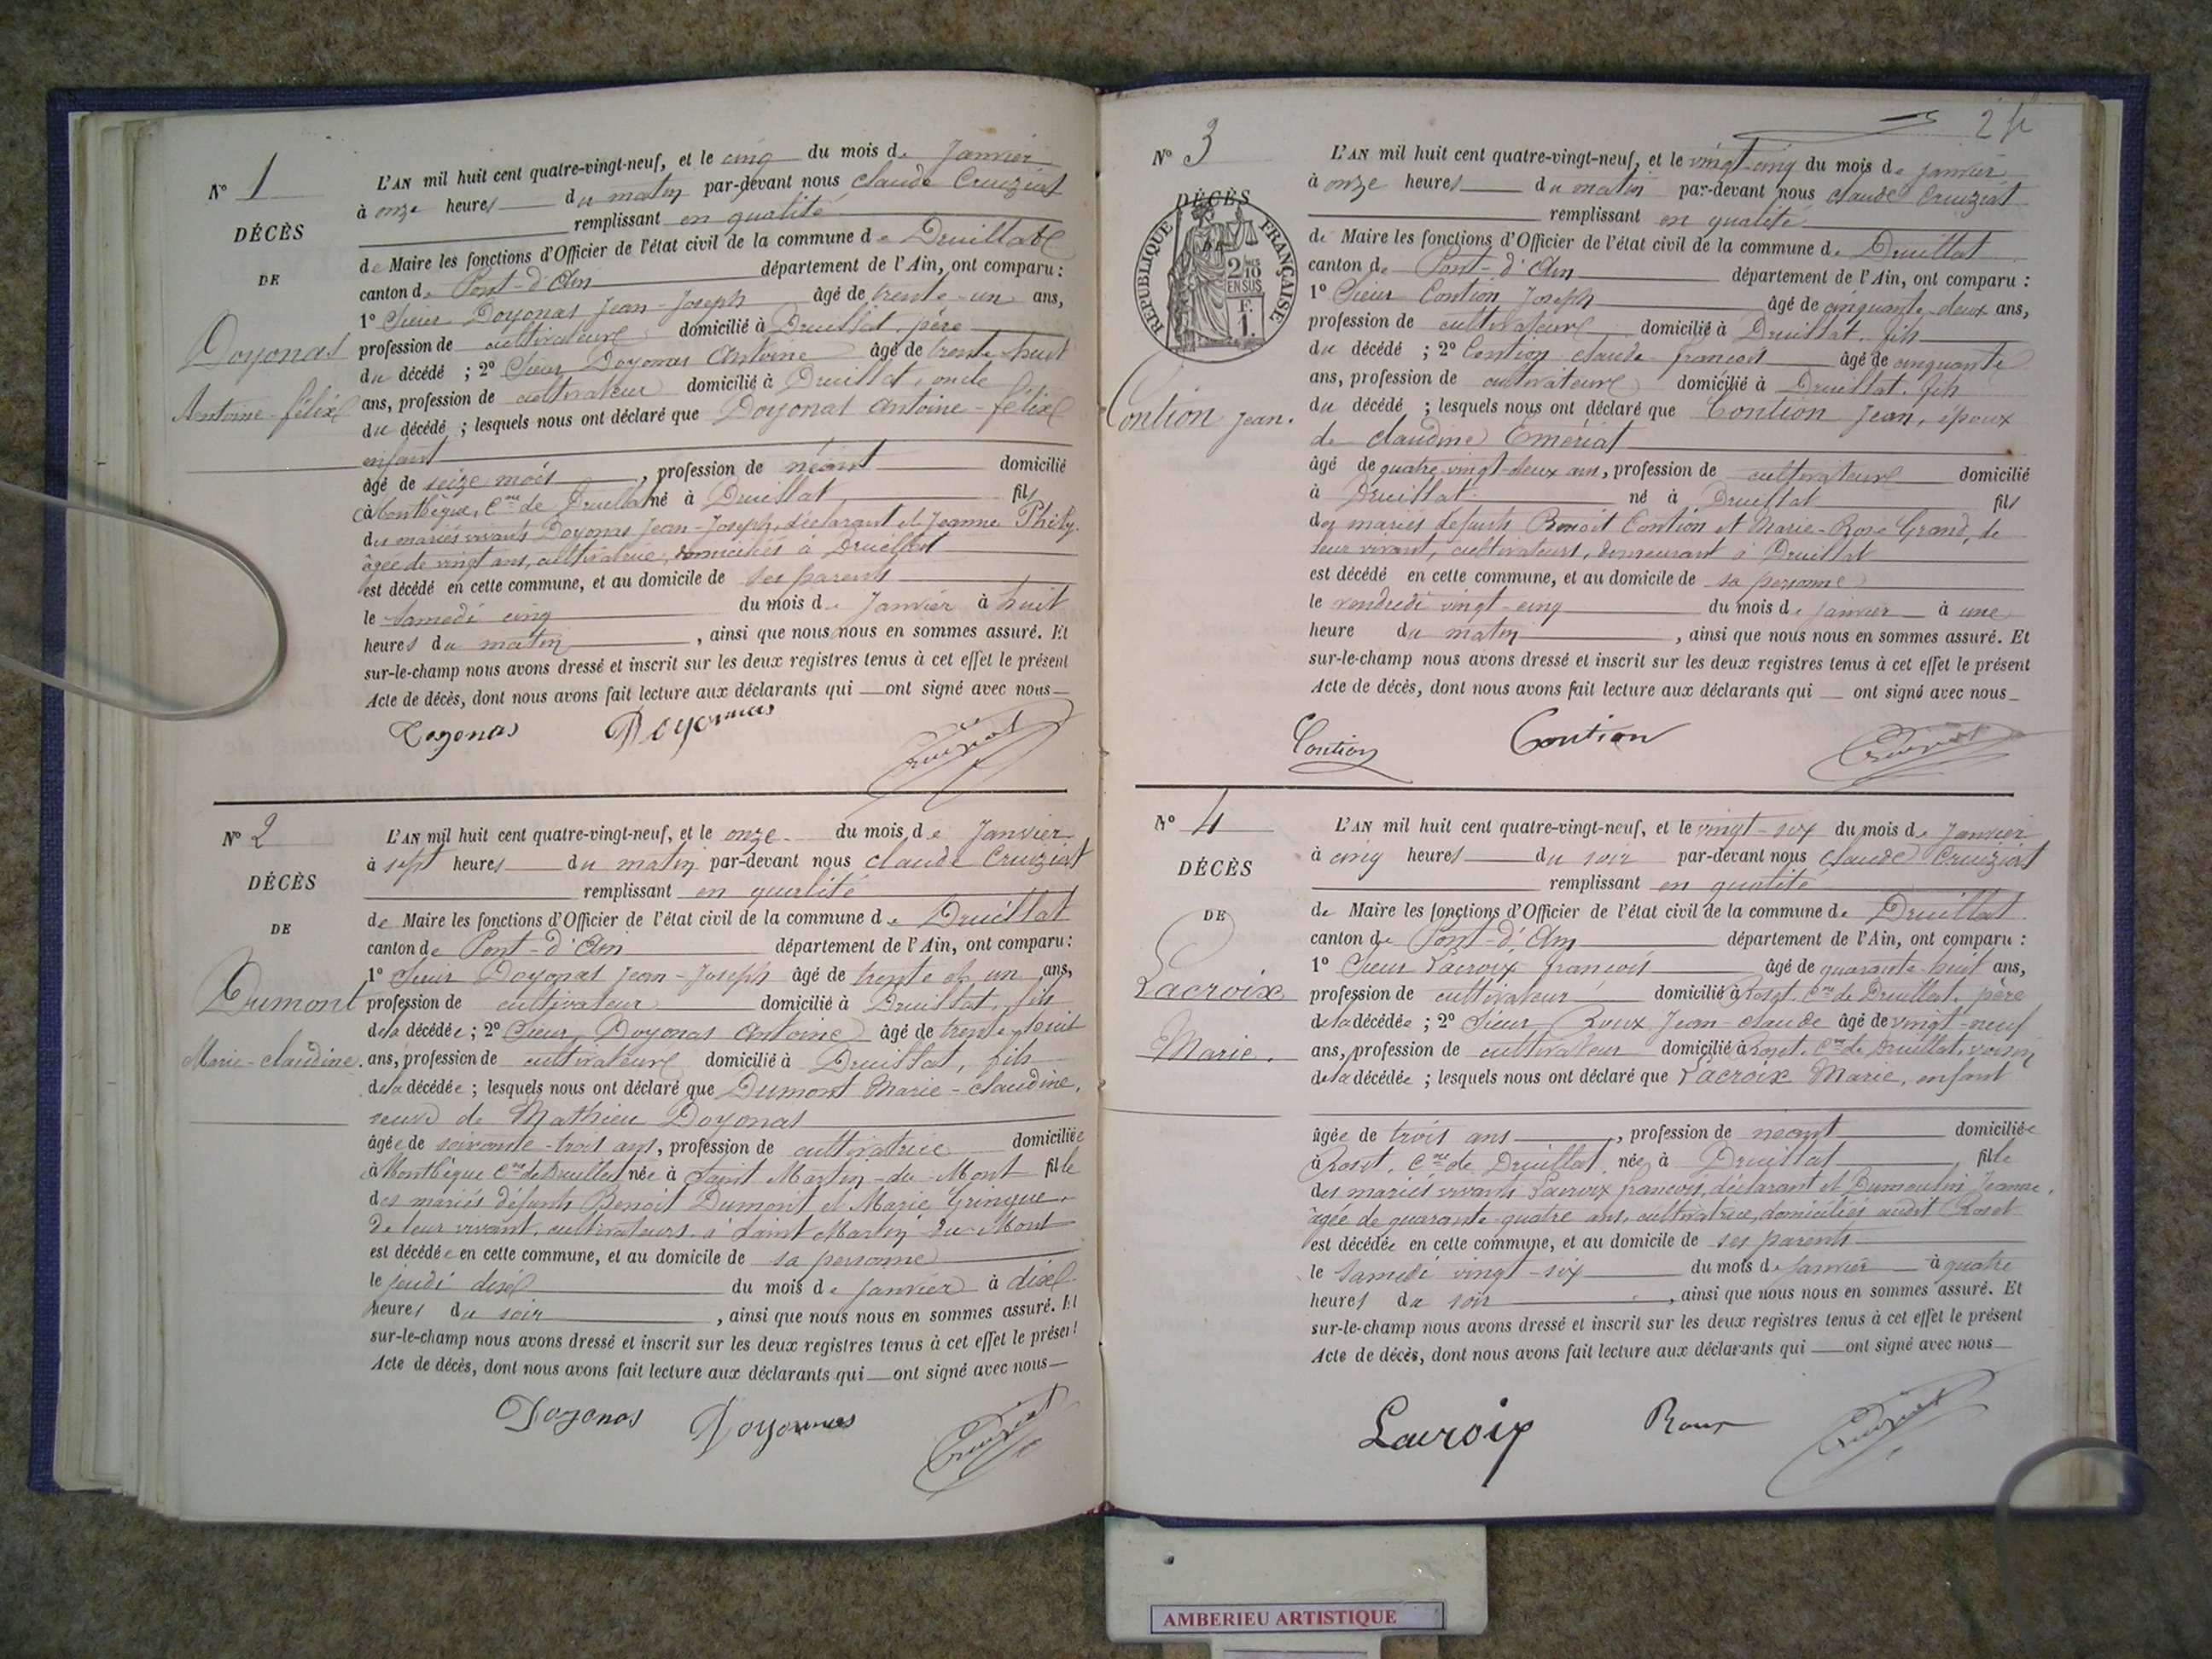 N° 1
DÉCÈS
DE
Doyonas
Antoine-félix
L'AN mil huit cent quatre-vingt-neuf, et le cinq du mois de Janvier
à onze heures du matin par-devant nous Claude Cruiziat
remplissant en qualité
de Maire les fonctions d'Officier de l'état civil de la commune de Druillat
canton de Pont-d'Ain département de l'Ain, ont comparu :
1° Sieur Doyonas Jean-Joseph âgé de trente-un ans,
profession de cultivateur domicilié à Druillat, père
du décédé ; 2° Sieur Doyonas Antoine âgé de trente-huit
ans, profession de cultivateur domicilié à Druillat, oncle
du décédé ; lesquels nous ont déclaré que Doyonas Antoine-félix
enfant
âgé de seize mois, profession de néant domicilié
à Montbègue, Cne de Druillat né à Druillat fils
des mariés vivants Doyonas Jean-Joseph, déclarant et Jeanne Philip.
âgée de vingt ans, cultivatrice, domiciliés à Druillat
est décédé en cette commune, et au domicile de ses parents
le samedi cinq du mois de Janvier à huit
heures du matin, ainsi que nous nous en sommes assuré. Et
sur-le-champ nous avons dressé et inscrit sur les deux registres tenus à cet effet le présent
Acte de décès, dont nous avons fait lecture aux déclarants qui ont signé avec nous
Doyonas Doyonnas Cruiziat
N° 2
DÉCÈS
DE
Dumont
Marie-claudine.
L'AN mil huit cent quatre-vingt-neuf, et le onze du mois de Janvier
à sept heures du matin par-devant nous Claude Cruiziat
remplissant en qualité
de Maire les fonctions d'Officier de l'état civil de la commune de Druillat
canton de Pont-d'Ain département de l'Ain, ont comparu :
1° Sieur Doyonas Jean-Joseph âgé de trente et un ans,
profession de cultivateur domicilié à Druillat, fils
de la décédée ; 2° Sieur Doyonas Antoine âgé de trente-huit
ans, profession de cultivateur domicilié à Druillat, fils
de la décédée ; lesquels nous ont déclaré que Dumont Marie-claudine,
veuve de Mathieu Doyonas
âgée de soixante-trois ans, profession de cultivatrice domiciliée
à Montbègue Cne de Druillat née à Saint Martin-du-Mont fille
des mariés défunts Benoit Dumont et Marie Gringue.
De leur vivant, cultivateurs à Saint Martin-du-Mont
est décédée en cette commune, et au domicile de sa personne
le jeudi dix du mois de Janvier à dix
heures du soir, ainsi que nous nous en sommes assuré. Et
sur-le-champ nous avons dressé et inscrit sur les deux registres tenus à cet effet le présent
Acte de décès, dont nous avons fait lecture aux déclarants qui ont signé avec nous
Doyonas Doyonnas Cruiziat
2
N° 3
DÉCÈS
DE
RÉPUBLIQUE FRANÇAISE
2/10 EN SUS
F. 1.
Contion Jean.
L'AN mil huit cent quatre-vingt-neuf, et le vingt-cinq du mois de Janvier
à onze heures du matin par-devant nous Claude Cruiziat
remplissant en qualité
de Maire les fonctions d'Officier de l'état civil de la commune de Druillat
canton de Pont-d'Ain département de l'Ain, ont comparu :
1° Sieur Contion Joseph âgé de cinquante-deux ans,
profession de cultivateur domicilié à Druillat, fils
du décédé ; 2° Contion Claude-françois âgé de cinquante
ans, profession de cultivateur domicilié à Druillat, fils
du décédé ; lesquels nous ont déclaré que Contion Jean, époux
de Claudine Emeriat
âgé de quatre-vingt-deux ans, profession de cultivateur domicilié
à Druillat né à Druillat fils
des mariés défunts Benoit Contion et Marie-Rose Grand, de
leur vivant, cultivateurs, demeurant à Druillat
est décédé en cette commune, et au domicile de sa personne
le vendredi vingt-cinq du mois de Janvier à une
heure du matin, ainsi que nous nous en sommes assuré. Et
sur-le-champ nous avons dressé et inscrit sur les deux registres tenus à cet effet le présent
Acte de décès, dont nous avons fait lecture aux déclarants qui ont signé avec nous
Contion Contion Cruiziat
N° 4
DÉCÈS
DE
Lacroix
Marie.
L'AN mil huit cent quatre-vingt-neuf, et le vingt-six du mois de Janvier
à cinq heures du soir par-devant nous Claude Cruiziat
remplissant en qualité
de Maire les fonctions d'Officier de l'état civil de la commune de Druillat
canton de Pont-d'Ain département de l'Ain, ont comparu :
1° Sieur Lacroix françois âgé de quarante-huit ans,
profession de cultivateur domicilié à Roset, Cne de Druillat, père
de la décédée ; 2° Sieur Roux Jean-claude âgé de vingt-neuf
ans, profession de cultivateur domicilié à Roset, Cne de Druillat, voisin
de la décédée ; lesquels nous ont déclaré que Lacroix Marie, enfant
âgée de trois ans, profession de néant domiciliée
à Roset, Cne de Druillat, née à Druillat fille
des mariés vivants Lacroix françois, déclarant et Dumoulin Jeanne,
âgée de quarante-quatre ans, cultivatrice, domiciliés audit Roset
est décédée en cette commune, et au domicile de ses parents
le samedi vingt-six du mois de Janvier à quatre
heures du soir, ainsi que nous nous en sommes assuré. Et
sur-le-champ nous avons dressé et inscrit sur les deux registres tenus à cet effet le présent
Acte de décès, dont nous avons fait lecture aux déclarants qui ont signé avec nous
Lacroix Roux Cruiziat
AMBERIEU ARTISTIQUE